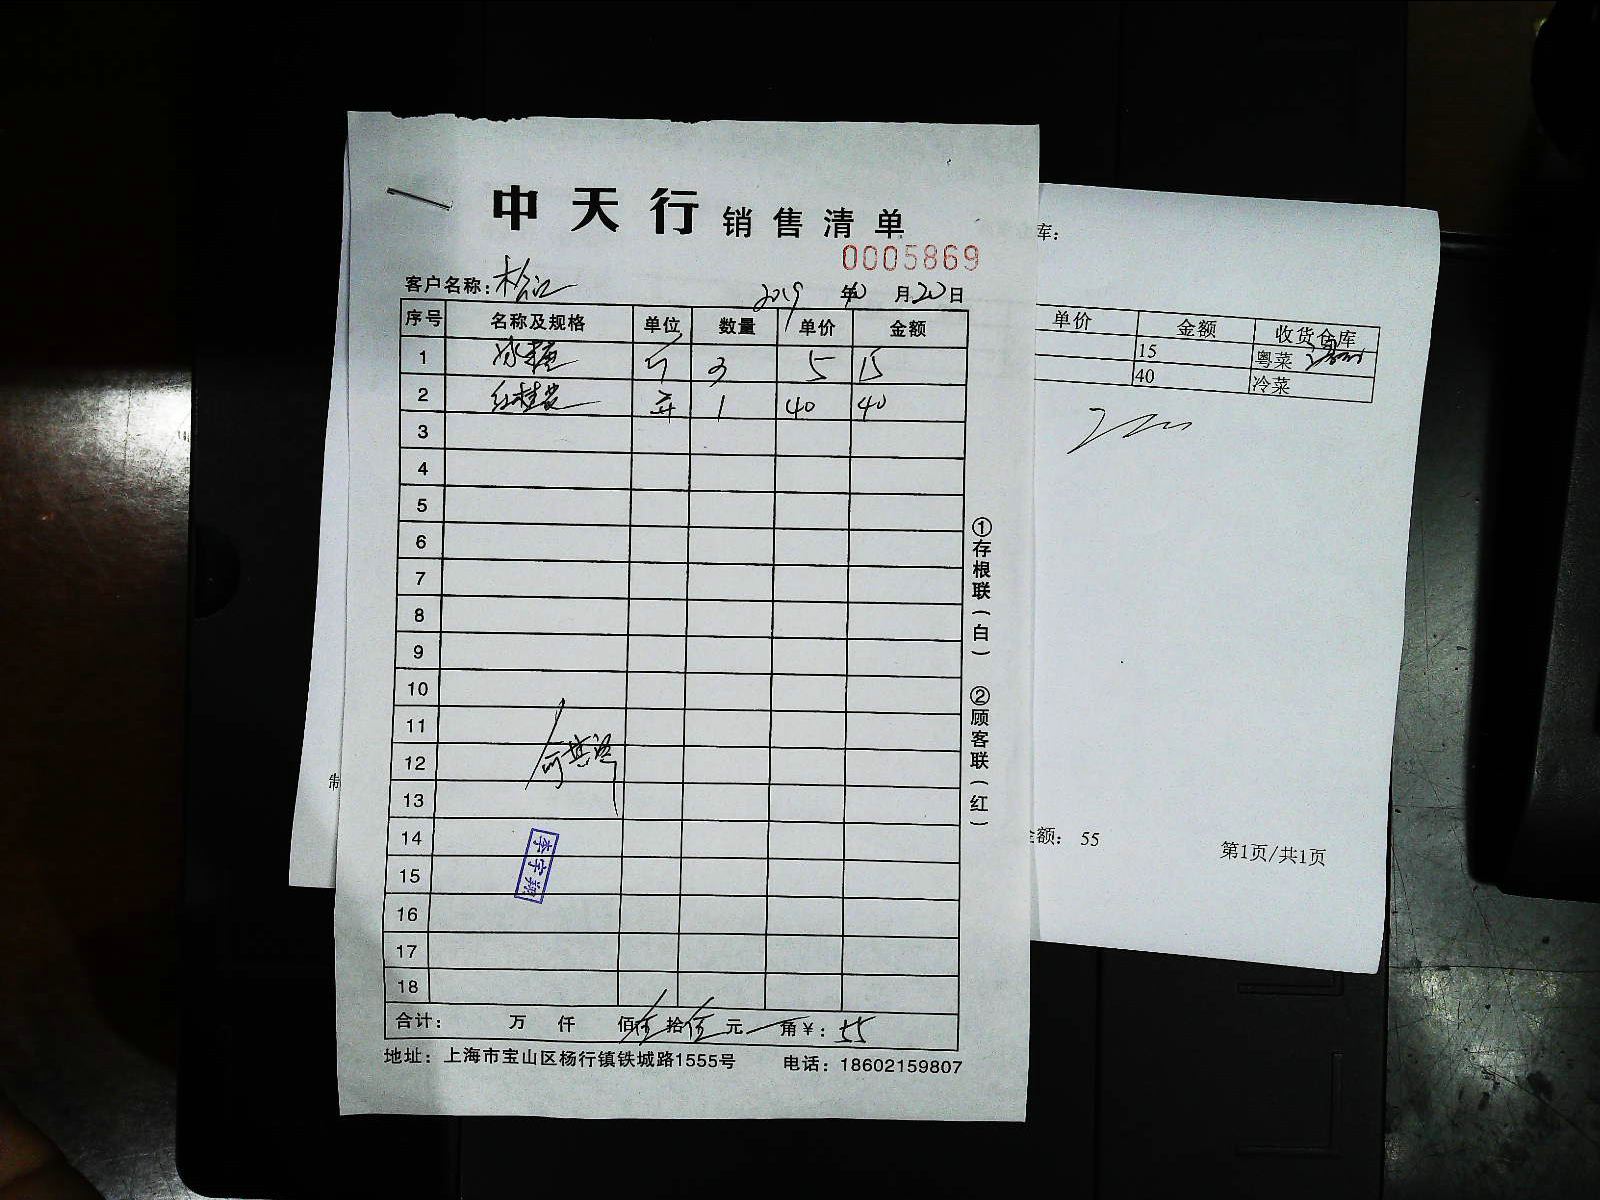 中天行 销售清单
0005869
客户名称：松江 2019年10月20日
序号 名称及规格 单位 数量 单价 金额
1 3 5 15
2 1 40 40
3
4
5
6
7
8
9
10
11
12
13
14
15
16
17
18
李宇翔
合计： 万 仟 佰伍拾伍元 角￥：55
地址：上海市宝山区杨行镇铁城路1555号 电话：18602159807
①存根联(白) ②顾客联(红)
库：
单价 金额 收货仓库
15 粤菜
40 冷菜
制
金额： 55
第1页/共1页